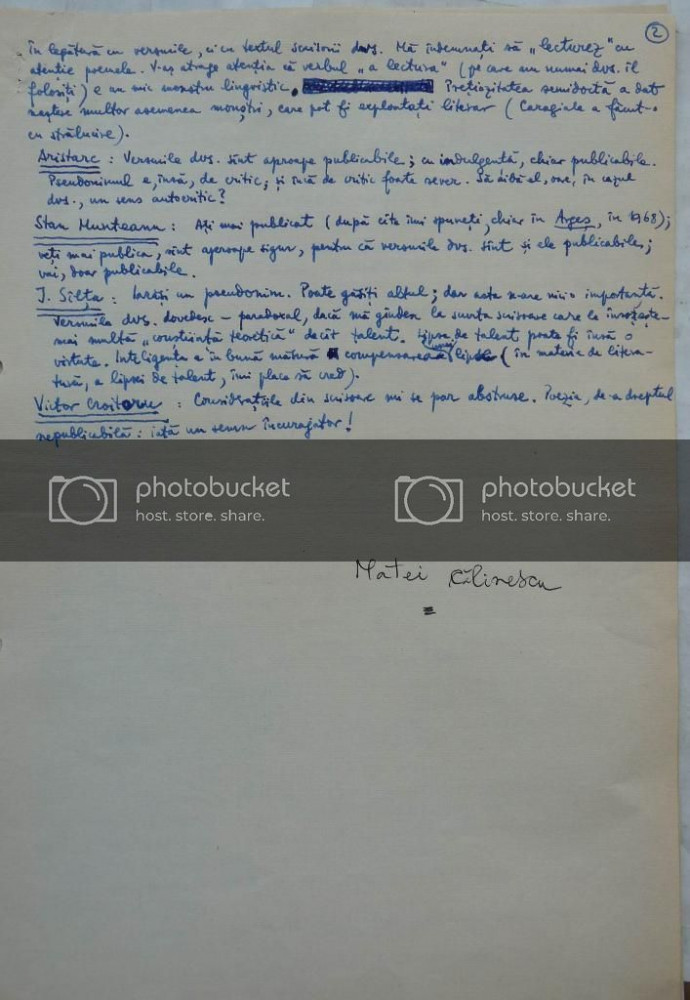 2
în legătură cu versurile, ci cu textul scrisorii dvs. Mă îndemnați să „lecturez" cu
atenție poemele. V-aș atrage atenția că verbul „a lectura" (pe care nu numai dvs. îl
folosiți) e un mic monstru lingvistic. Prețiozitatea semidoctă a dat
naștere multor asemenea monștri, care pot fi exploatați literar (Caragiale a făcut-o
cu strălucire).
Aristarc: Versurile dvs. sînt aproape publicabile; cu indulgență, chiar publicabile.
Pseudonimul e, însă, de critic; și încă de critic foarte sever. Să aibă el, oare, în cazul
dvs., un sens autocritic?
Stan Munteanu: Ați mai publicat (după cîte îmi spuneți, chiar în Argeș, în 1968);
veți mai publica, sînt aproape sigur, pentru că versurile dvs. sînt și ele publicabile;
vai, doar publicabile.
J. Silța: Iarăși un pseudonim. Poate găsiți altul; dar asta n-are nici o importanță.
Versurile dvs. dovedesc – paradoxal, dacă mă gîndesc la scurta scrisoare care le însoțește –
mai multă „conștiință teoretică" decît talent. Lipsa de talent poate fi însă o
virtute. Inteligența e în bună măsură compensarea unei lipse (în materie de litera-
tură, a lipsei de talent, îmi place să cred).
Victor Croitoru: Considerațiile din scrisoare mi se par abstruse. Poezia, de-a dreptul
nepublicabilă: iată un semn încurajator!
photobucket
host. store. share.
photobucket
host. store. share.
Matei Călinescu